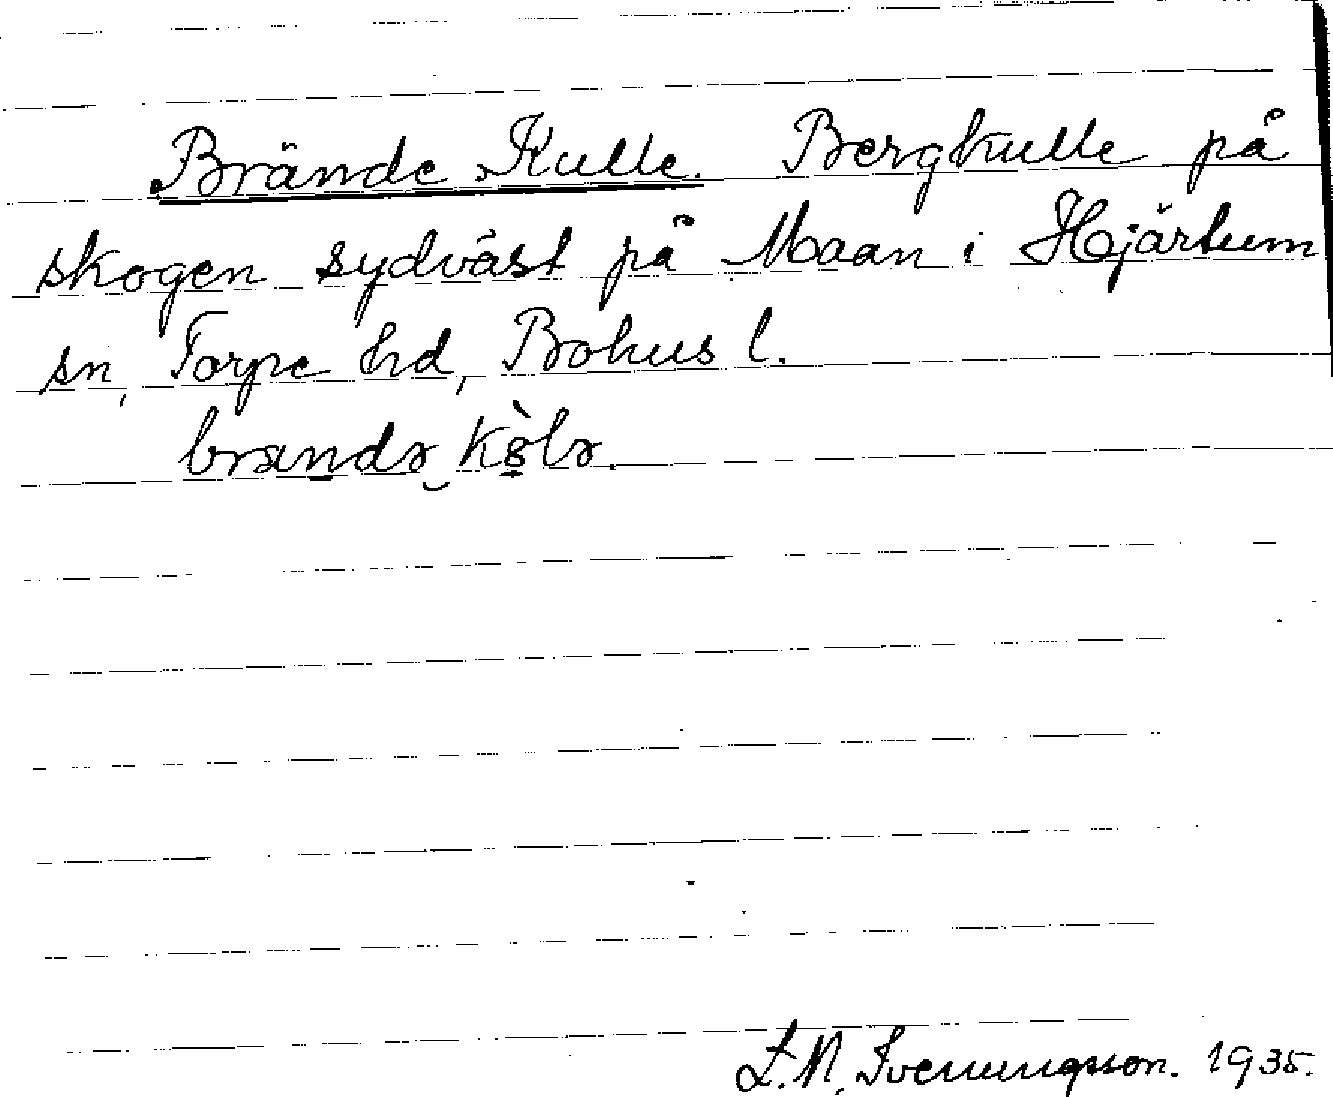 Brände Kulle. Bergkulle på
skogen sydväst på Maan i Hjärtum
sn, Torpe hd, Bohus l.
L. N. Svenungsson. 1935.